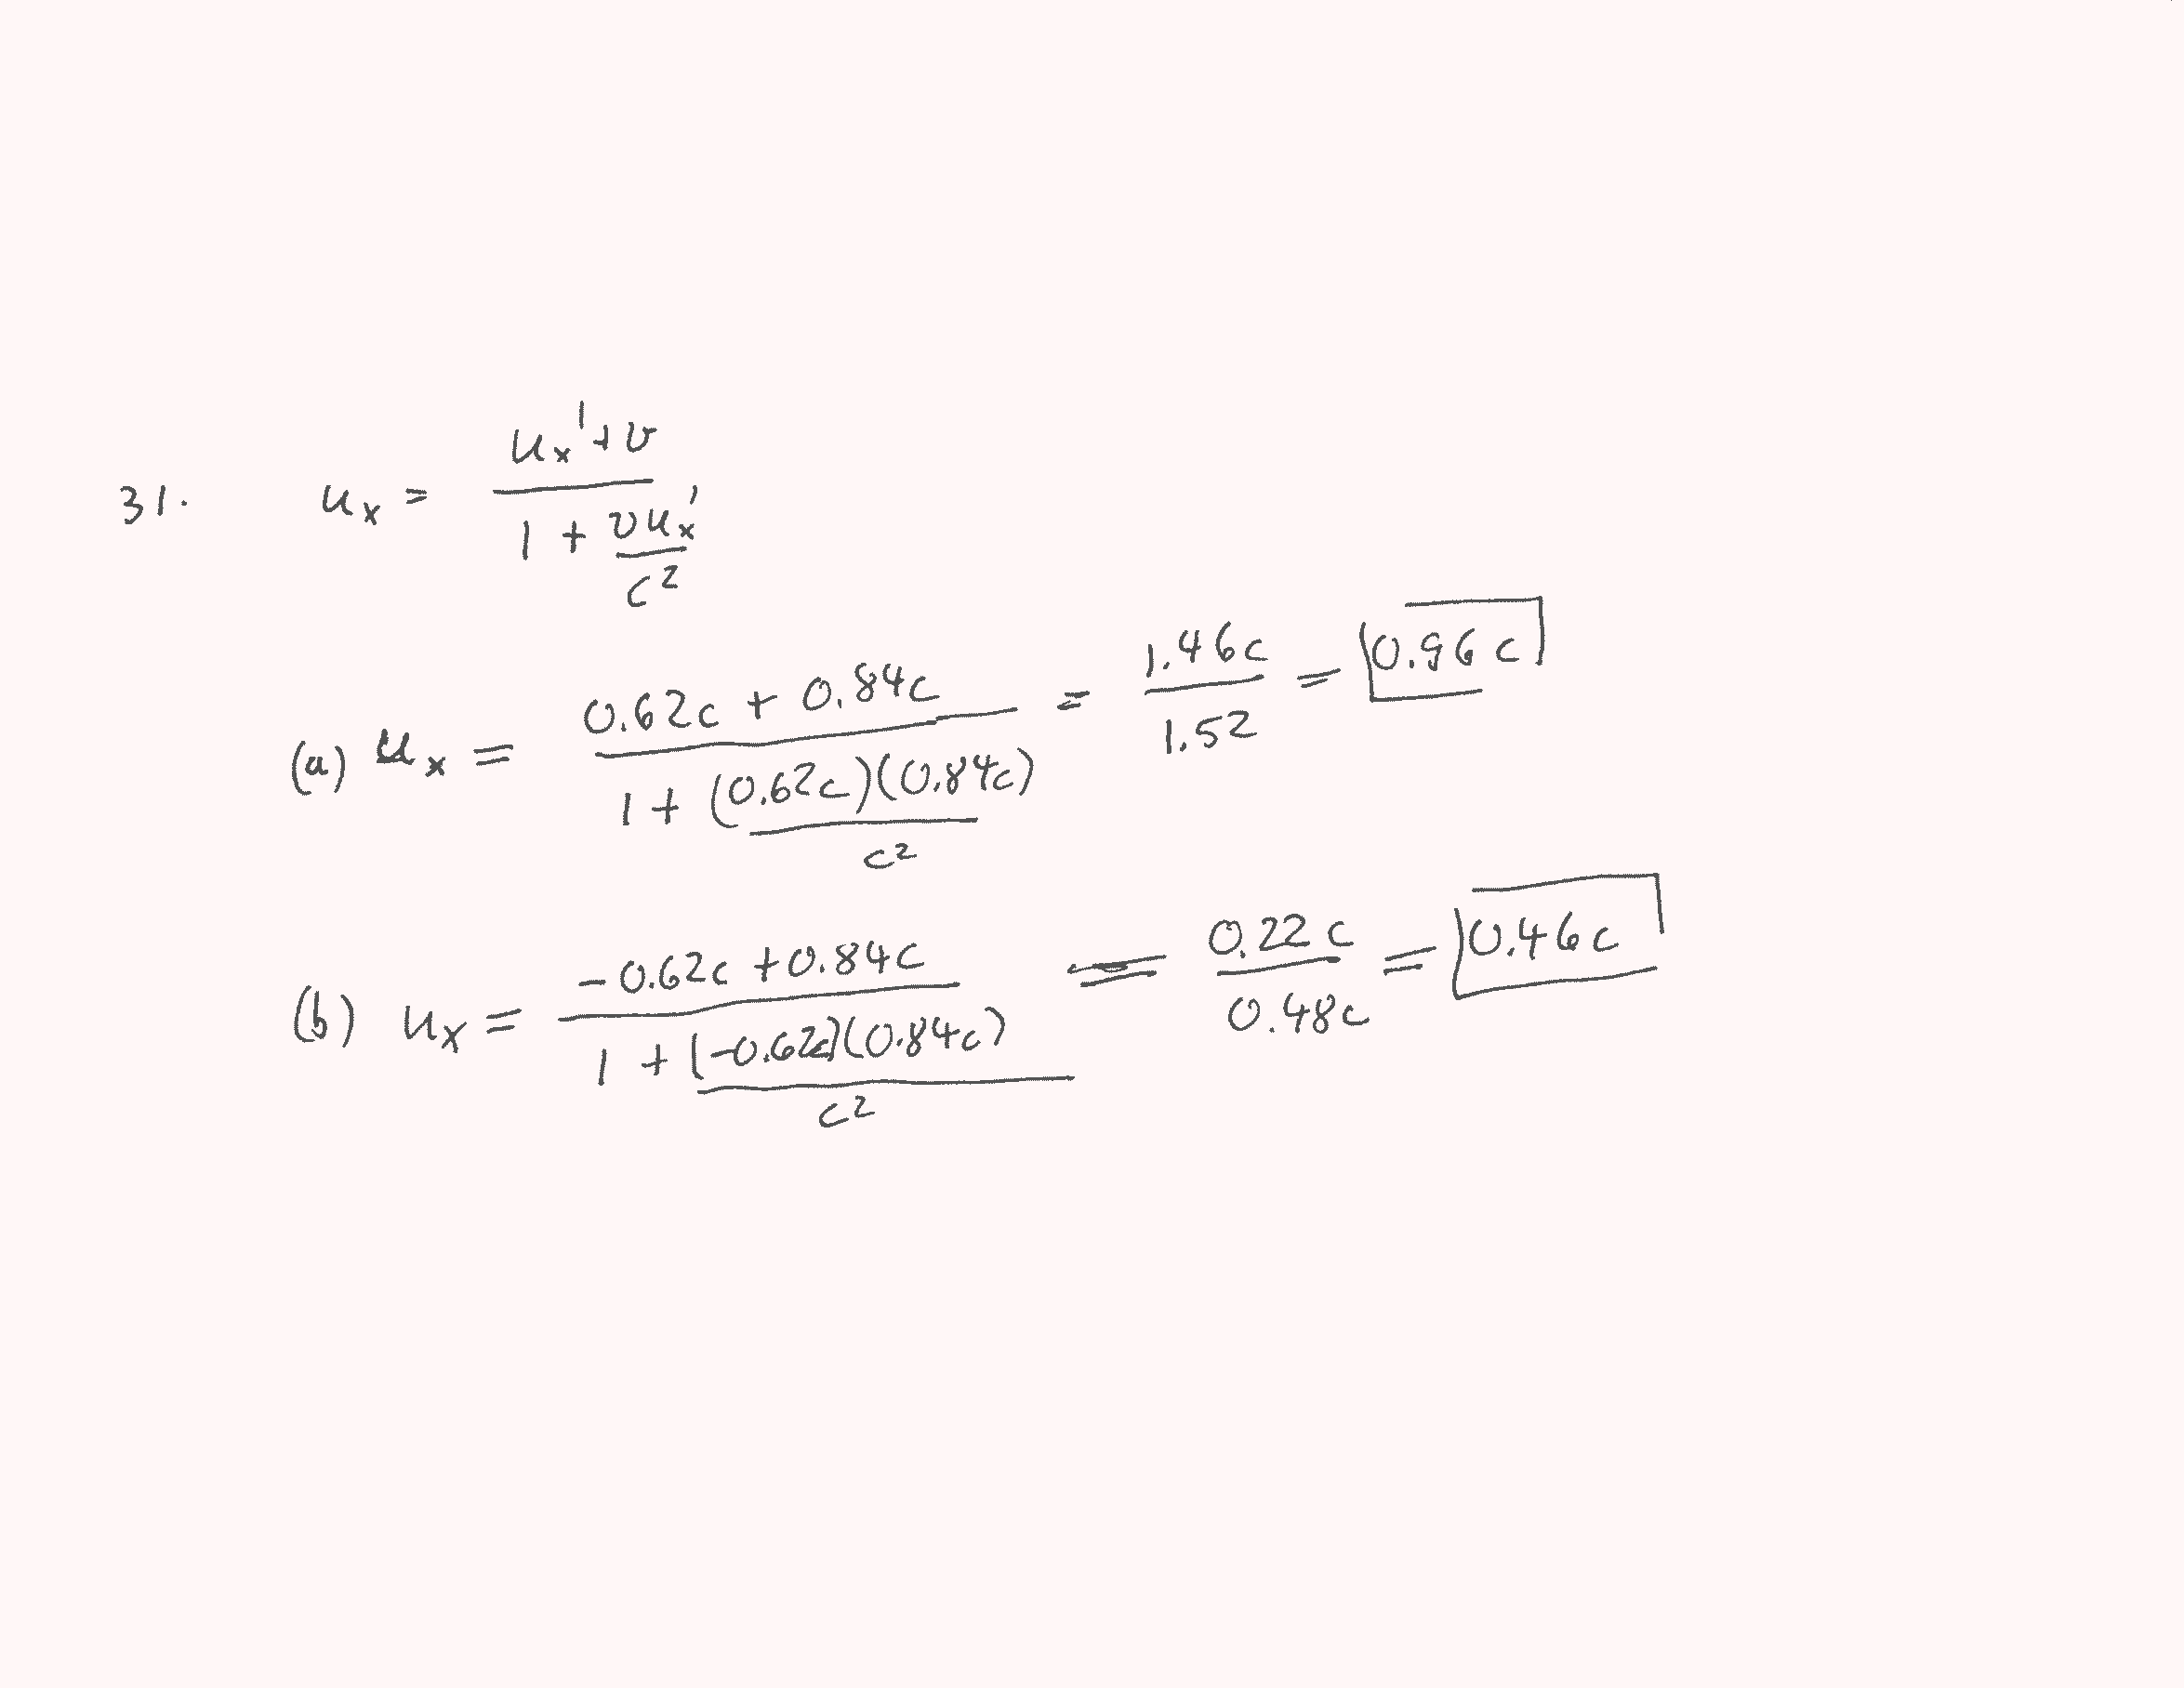 31. uₓ = (uₓ' + v) / (1 + vuₓ'/c²)
(a) uₓ = (0.62c + 0.84c) / (1 + (0.62c)(0.84c)/c²) = 1.46c / 1.52 = 0.96c
(b) uₓ = (-0.62c + 0.84c) / (1 + (-0.62c)(0.84c)/c²) = 0.22c / 0.48c = 0.46c